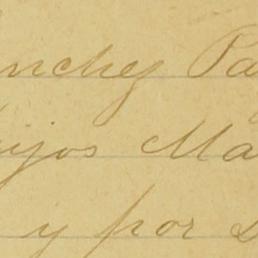 nchez Pa
ijos Ma
y por